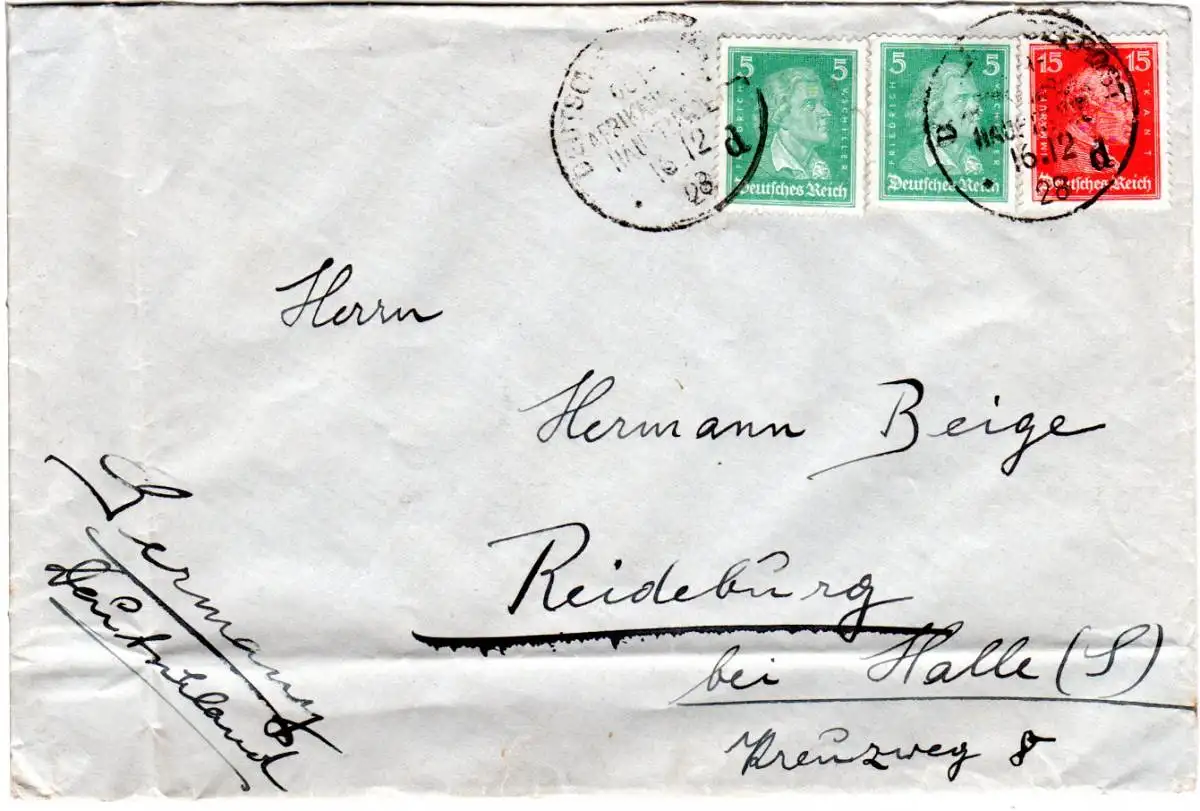 DEUTSCHE
AFRIKA
16.12
28
d
5 5
FRIEDRICH V. SCHILLER
Deutsches Reich
5 5
FRIEDRICH
Deutsches Reich
15 15
KANT
Deutsches Reich
16.12
28
d
Herrn
Hermann Beige
Reideburg
bei Halle (S)
Kreuzweg 8
Germany
Deutschland